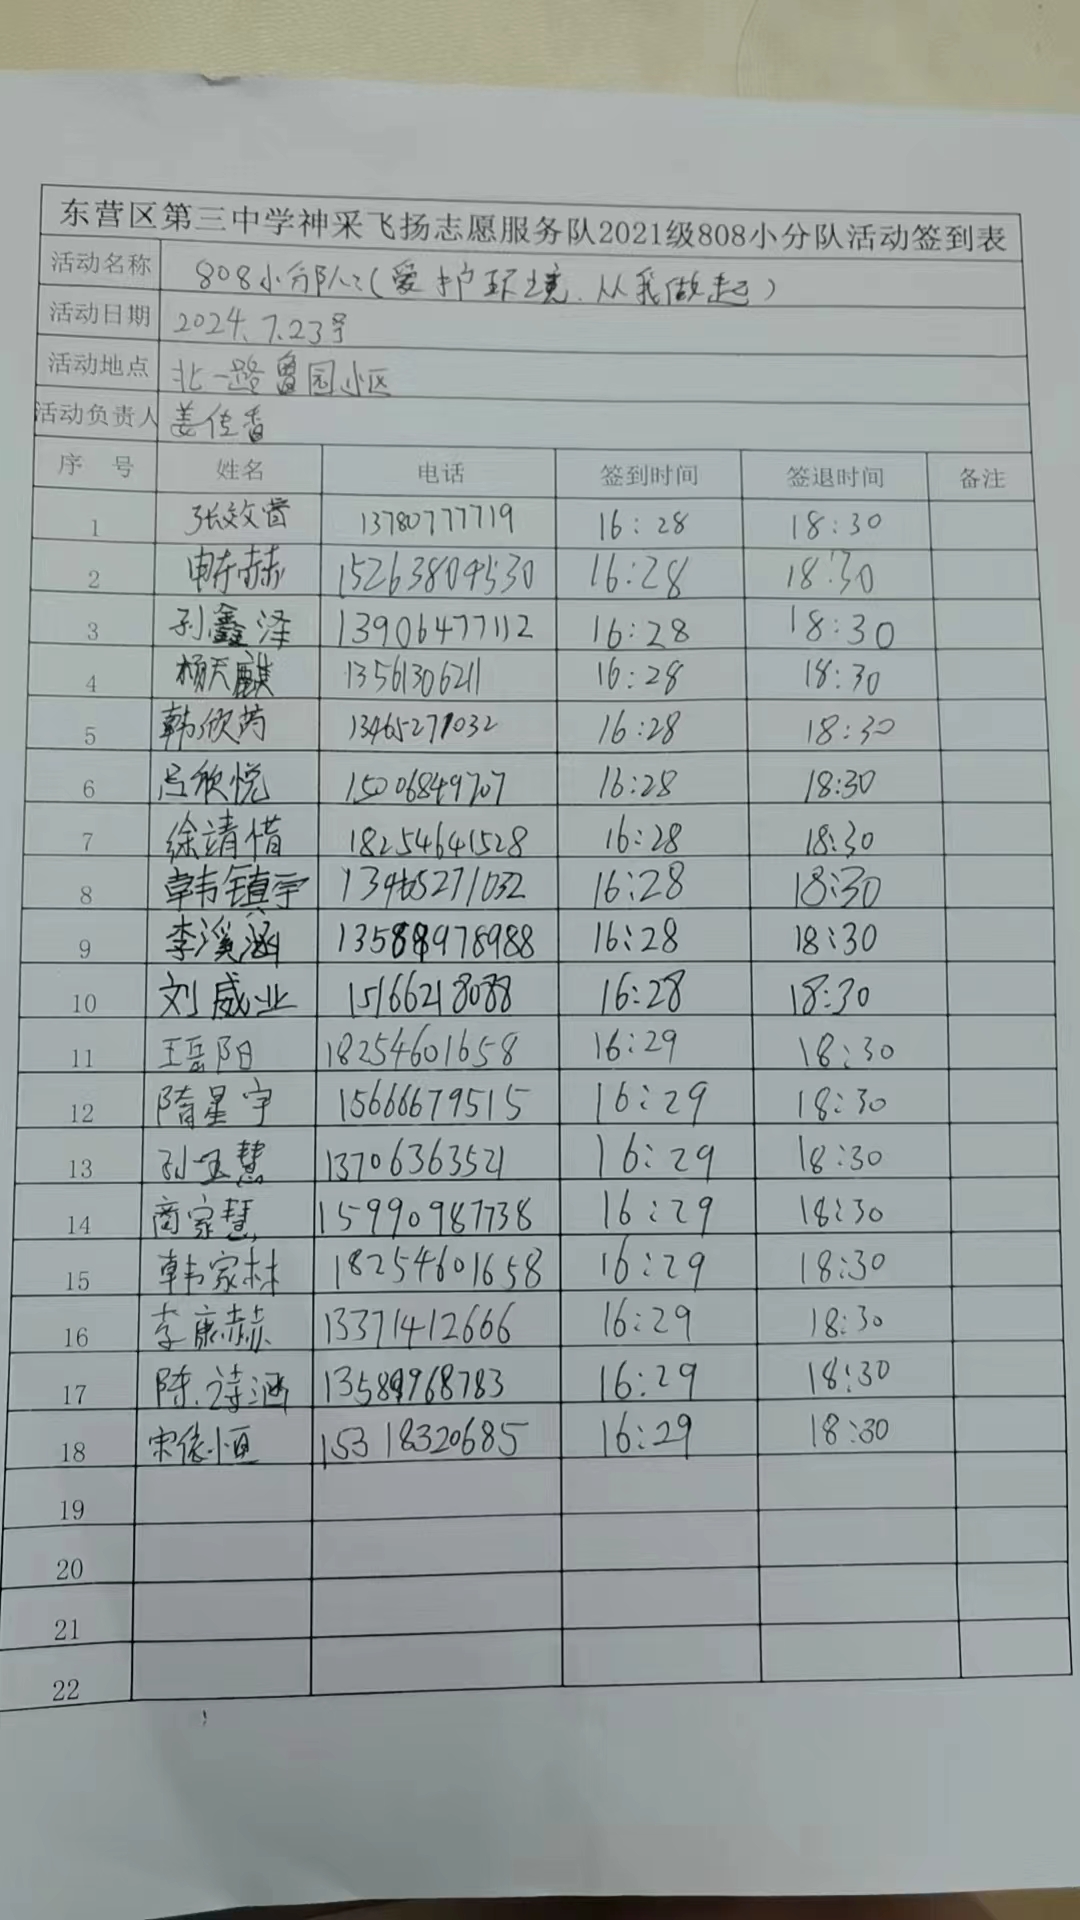 东营区第三中学神采飞扬志愿服务队2021级808小分队活动签到表
活动名称 808小分队(爱护环境.从我做起)
活动日期 2024.7.23号
活动地点 北一路鲁园小区
活动负责人 姜传香
序 号 姓名 电话 签到时间 签退时间 备注
1 张效萱 13780777719 16:28 18:30
2 申东赫 15263804530 16:28 18:30
3 孙鑫泽 13906477112 16:28 18:30
4 杨天麒 13561306211 16:28 18:30
5 韩欣芮 13465271032 16:28 18:30
6 吕欣悦 15006849707 16:28 18:30
7 徐靖惜 18254641528 16:28 18:30
8 韩镇宇 13465271032 16:28 18:30
9 李溪涵 13589978988 16:28 18:30
10 刘威业 15166218088 16:28 18:30
11 王岳阳 18254601658 16:29 18:30
12 隋星宇 15666679515 16:29 18:30
13 孙玉慧 13706363521 16:29 18:30
14 商家慧 15990987738 16:29 18:30
15 韩家林 18254601658 16:29 18:30
16 李康赫 13371412666 16:29 18:30
17 陈诗涵 13589968783 16:29 18:30
18 宋 15318320685 16:29 18:30
19
20
21
22